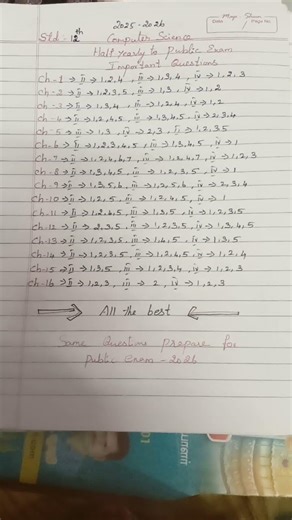 2025-2026
Std : 12th Computer Science
Half Yearly to Public Exam
Important Questions
Ch-1 → ii → 1,2,4, iii → 1,3,4, iv → 1,2,3
Ch-2 → ii → 1,2,3,5, iii → 1,3, iv → 1,2
Ch-3 → ii → 1,3,4, iii → 1,2,4, iv → 1,2
Ch-4 → ii → 1,2,4,5, iii → 1,3,4,5, iv → 2,3,4
Ch-5 → iii → 1,3, iv → 2,3, ii → 1,2,3,5
Ch-6 → ii → 1,2,3,4,5, iii → 1,3,4,5, iv → 1
Ch-7 → ii → 1,2,4,6,7, iii → 1,3,4,7, iv → 1,2,3
Ch-8 → ii → 1,3,4,5, iii → 1,2,3,5, iv → 1
Ch-9 → ii → 1,3,5,6, iii → 1,2,5,6, iv → 2,3,4
Ch-10 → ii → 1,2,5, iii → 1,2,4,5, iv → 1
Ch-11 → ii → 1,2,4,5, iii → 1,3,5, iv → 1,2,3,5
Ch-12 → ii → 2,3,5, iii → 1,2,3,5, iv → 1,3,4,5
Ch-13 → ii → 1,2,3,5, iii → 1,4,5, iv → 1,3,5
Ch-14 → ii → 1,2,3,5, iii → 1,2,4,5, iv → 1,2,4
Ch-15 → ii → 1,3,5, iii → 1,2,3,4, iv → 1,2,3
Ch-16 → ii → 1,2,3, iii → 2, iv → 1,2,3
All the best
Same Questions prepare for
public Exam - 2026